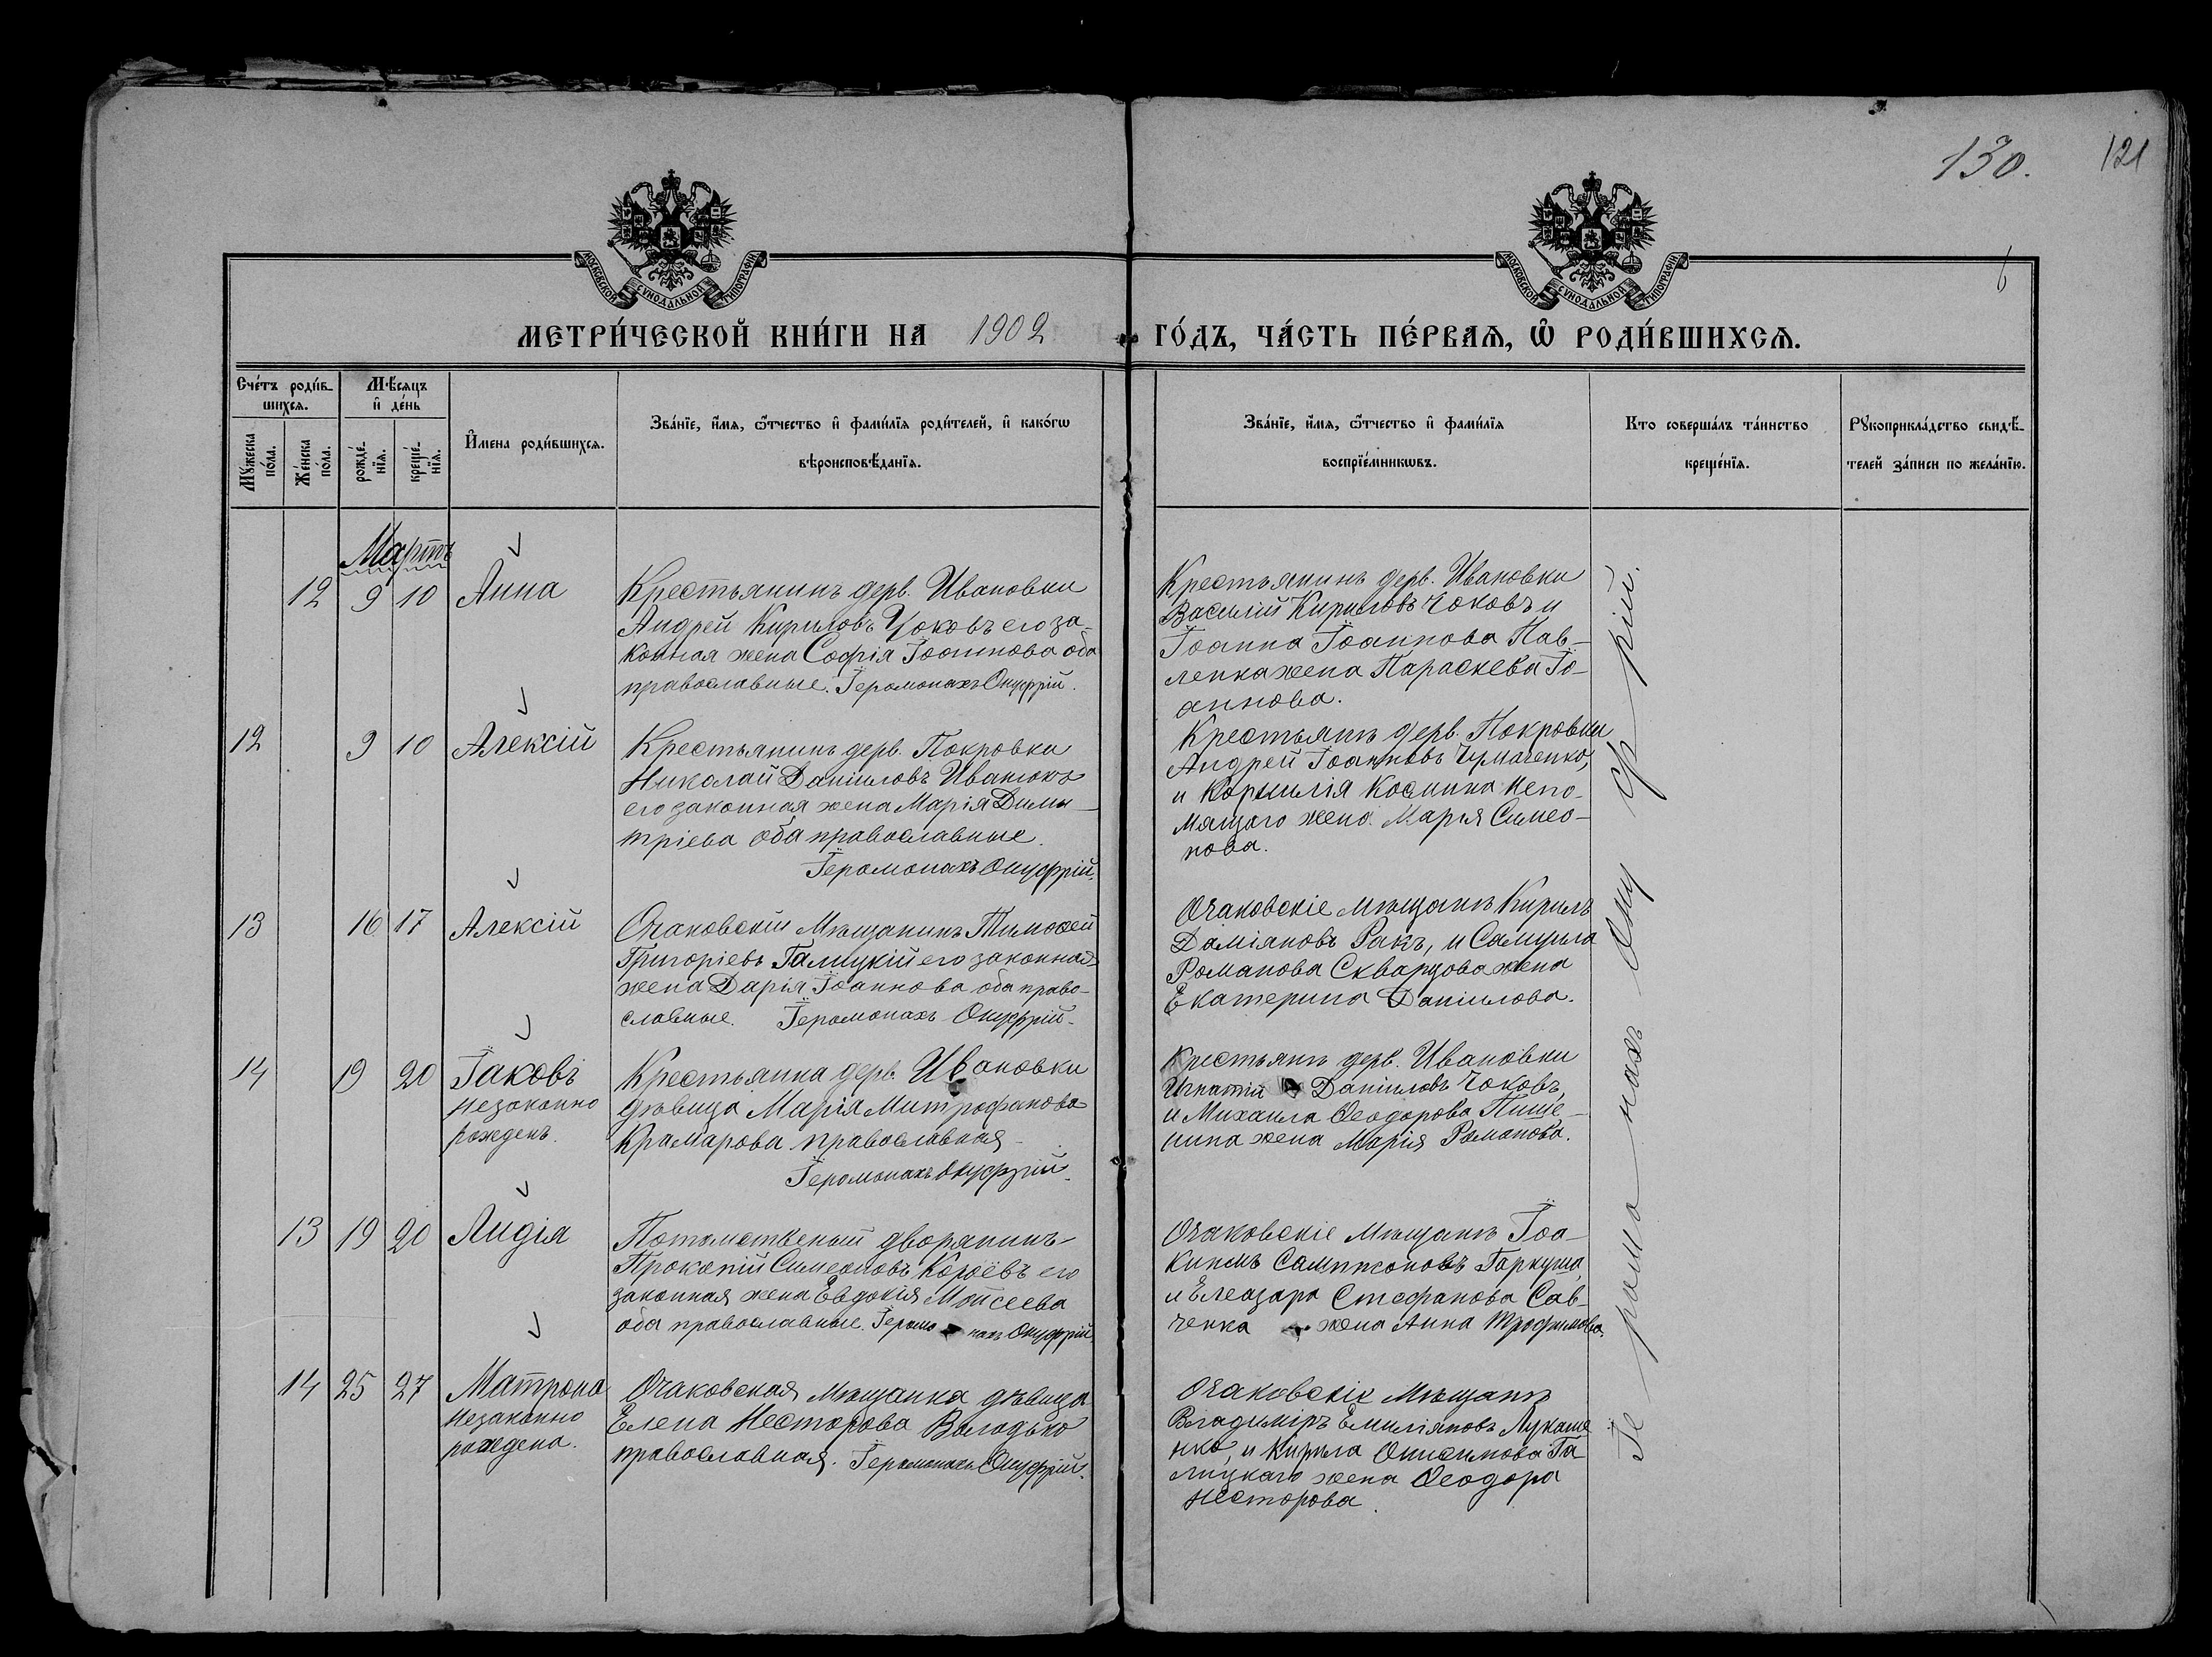 130.
121
6
МОСКОВСКОЙ СѴНОДАЛЬНОЙ ТИПОГРАФІИ
МОСКОВСКОЙ СѴНОДАЛЬНОЙ ТИПОГРАФІИ
МЕТРИ́ЧЕСКОЙ КНИ́ГИ НА 1902 ГО́ДЪ, ЧА́СТЬ ПЕ́РВАЯ, Ѡ РОДИ́ВШИХСЯ.
Сче́тъ роди́в-
шихся.
Мѣ́сяцъ
и де́нь
Мꙋ́жеска
по́ла.
Же́нска
по́ла.
рожде́-
нїя.
креще́-
нїя.
И҆мена роди́вшихся.
Зва́нїе, и҆́мя, ѻ҆́тчество и҆ фами́лїя роди́телей, и҆ како́гѡ
вѣроисповѣ́данїя.
Зва́нїе, и҆́мя, ѻ҆́тчество и҆ фами́лїя
воспрїе́мникѡвъ.
Кто соверша́лъ та́инство
креще́нїя.
Рꙋкоприкла́дство свидѣ́-
телей за́писи по жела́нїю.
Мартъ
12 9 10 Анна
Крестьянинъ дерв. Ивановки
Андрей Кириловъ Чоковъ его за-
конная жена Софія Іоаннова оба
православные. Іеромонахъ Онуфрій.
Крестьянинъ дерв. Ивановки
Василій Кириловъ Чоковъ и
Іоанна Іоаннова Пав-
ленка жена Параскева Іо-
аннова.
12 9 10 Алексій
Крестьянинъ дерв. Покровки
Николай Даніиловъ Иванюкъ
его законная жена Марія Дими-
тріева оба православные.
Іеромонахъ Онуфрій.
Крестьянѣ дерв. Покровки
Андрей Іоанновъ Чумаченко,
и Корнилія Космина Непо-
мящаго жена Марья Симео-
нова.
13 16 17 Алексій
Очаковскій Мѣщанинъ Тимоѳей
Григоріевъ Галицкій его законная
жена Дарья Іоаннова оба право-
славные. Іеромонахъ Онуфрій.
Очаковскіе Мѣщанѣ Кирилъ
Даміяновъ Ракъ, и Самуила
Романова Скварцова жена
Екатерина Даніилова.
14 19 20 Іаковъ
Незаконно
рожденъ.
Крестьянка дерв. Ивановки
дѣвица Марія Митрофанова
Крамарова православная.
Іеромонахъ Онуфрій.
Крестьянѣ дерв. Ивановки
Игнатій Даніиловъ Чоковъ,
и Михаила Ѳеодорова Пише-
нина жена Марія Романова.
13 19 20 Лидія
Потомственый дворянинъ
Прокопій Симеоновъ Короевъ его
законная жена Евдокія Моисеева
оба православные. Іеромонахъ Онуфрій.
Очаковскіе Мѣщанѣ Іоа-
кимъ Сампсоновъ Гаркуша,
и Елеазара Стефанова Сав-
ченка жена Анна Трофимова.
14 25 27 Матрона
Незаконно
рождена.
Очаковская мѣщанка дѣвица
Елена Несторова Володько
православная. Іеромонахъ Онуфрій.
Очаковскіе Мѣщанѣ
Владиміръ Емиліяновъ Лукаше
нко, и Кирила Онисимова Га-
лицкаго жена Ѳеодора
Несторова.
Іеромонахъ Онуфрій.